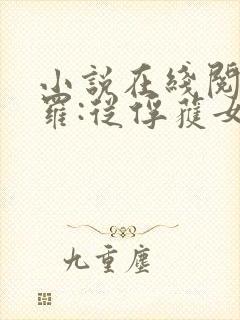 小説在綫閱
羅:從俘獲女
九重塵